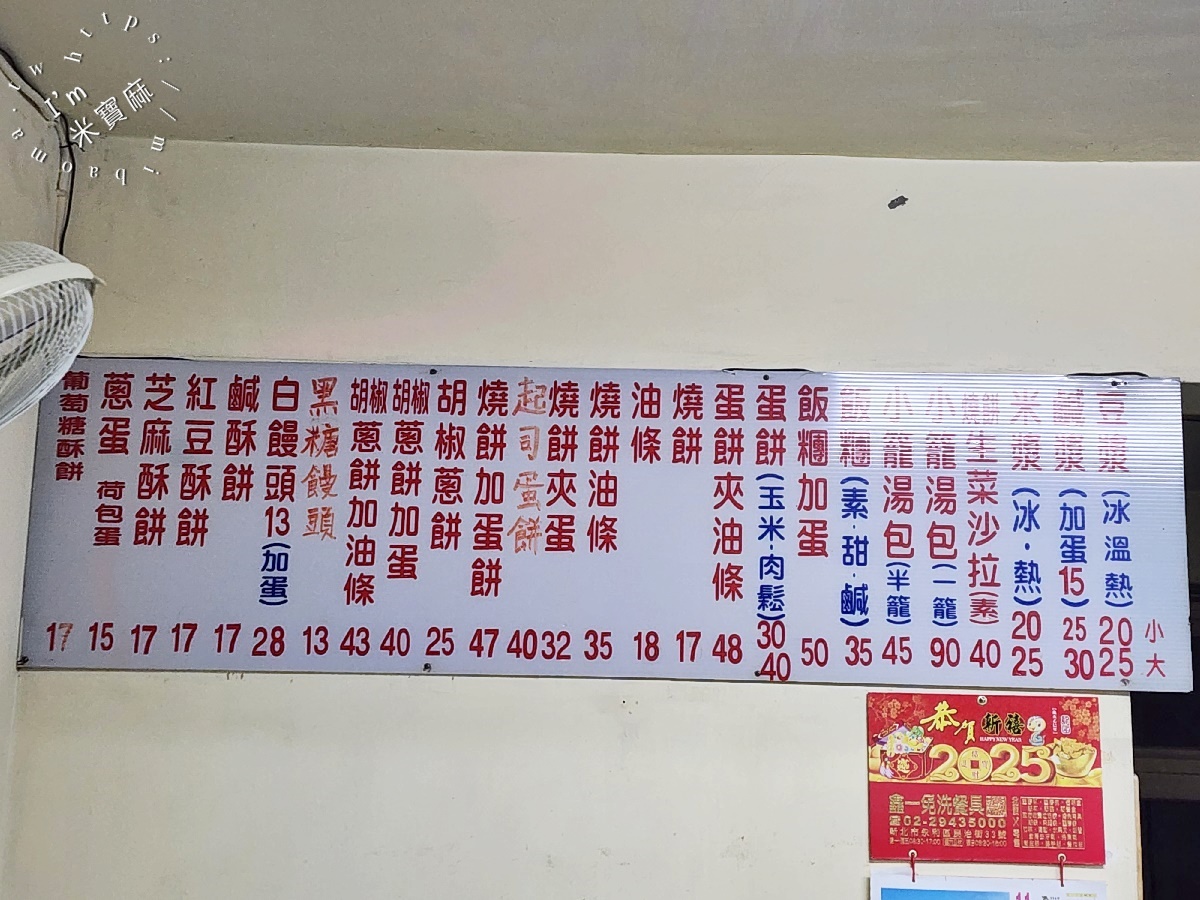 https://mibama.tw
I'm
米寶麻
豆漿(冰溫熱) 20 25
小
大
鹹漿(加蛋15) 25 30
米漿(冰·熱) 20 25
生菜沙拉(素) 40
小籠湯包(一籠) 90
小籠湯包(半籠) 45
飯糰(素甜·鹹) 35
飯糰加蛋 50
蛋餅(玉米·肉鬆) 30 40
蛋餅夾油條 48
燒餅 17
油條 18
燒餅油條 35
燒餅夾蛋 32
起司蛋餅 40
燒餅加蛋餅 47
胡椒蔥餅 25
胡椒蔥餅加蛋 40
胡椒蔥餅加油條 43
黑糖饅頭 13
白饅頭13(加蛋) 28
鹹酥餅 17
紅豆酥餅 17
芝麻酥餅 17
蔥蛋 荷包蛋 15
葡萄糖酥餅 17
恭賀新禧
HAPPY NEW YEAR
2025
鑫一免洗餐具
02-29435000